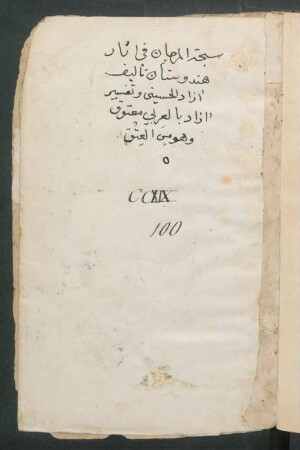 سبحة المرجان في اثار
هندوستان تاليف
ازاد الحسيني وتفسير
ازاد بالعربي معتوق
وهو من العِتْق
ه
CCXIX
100